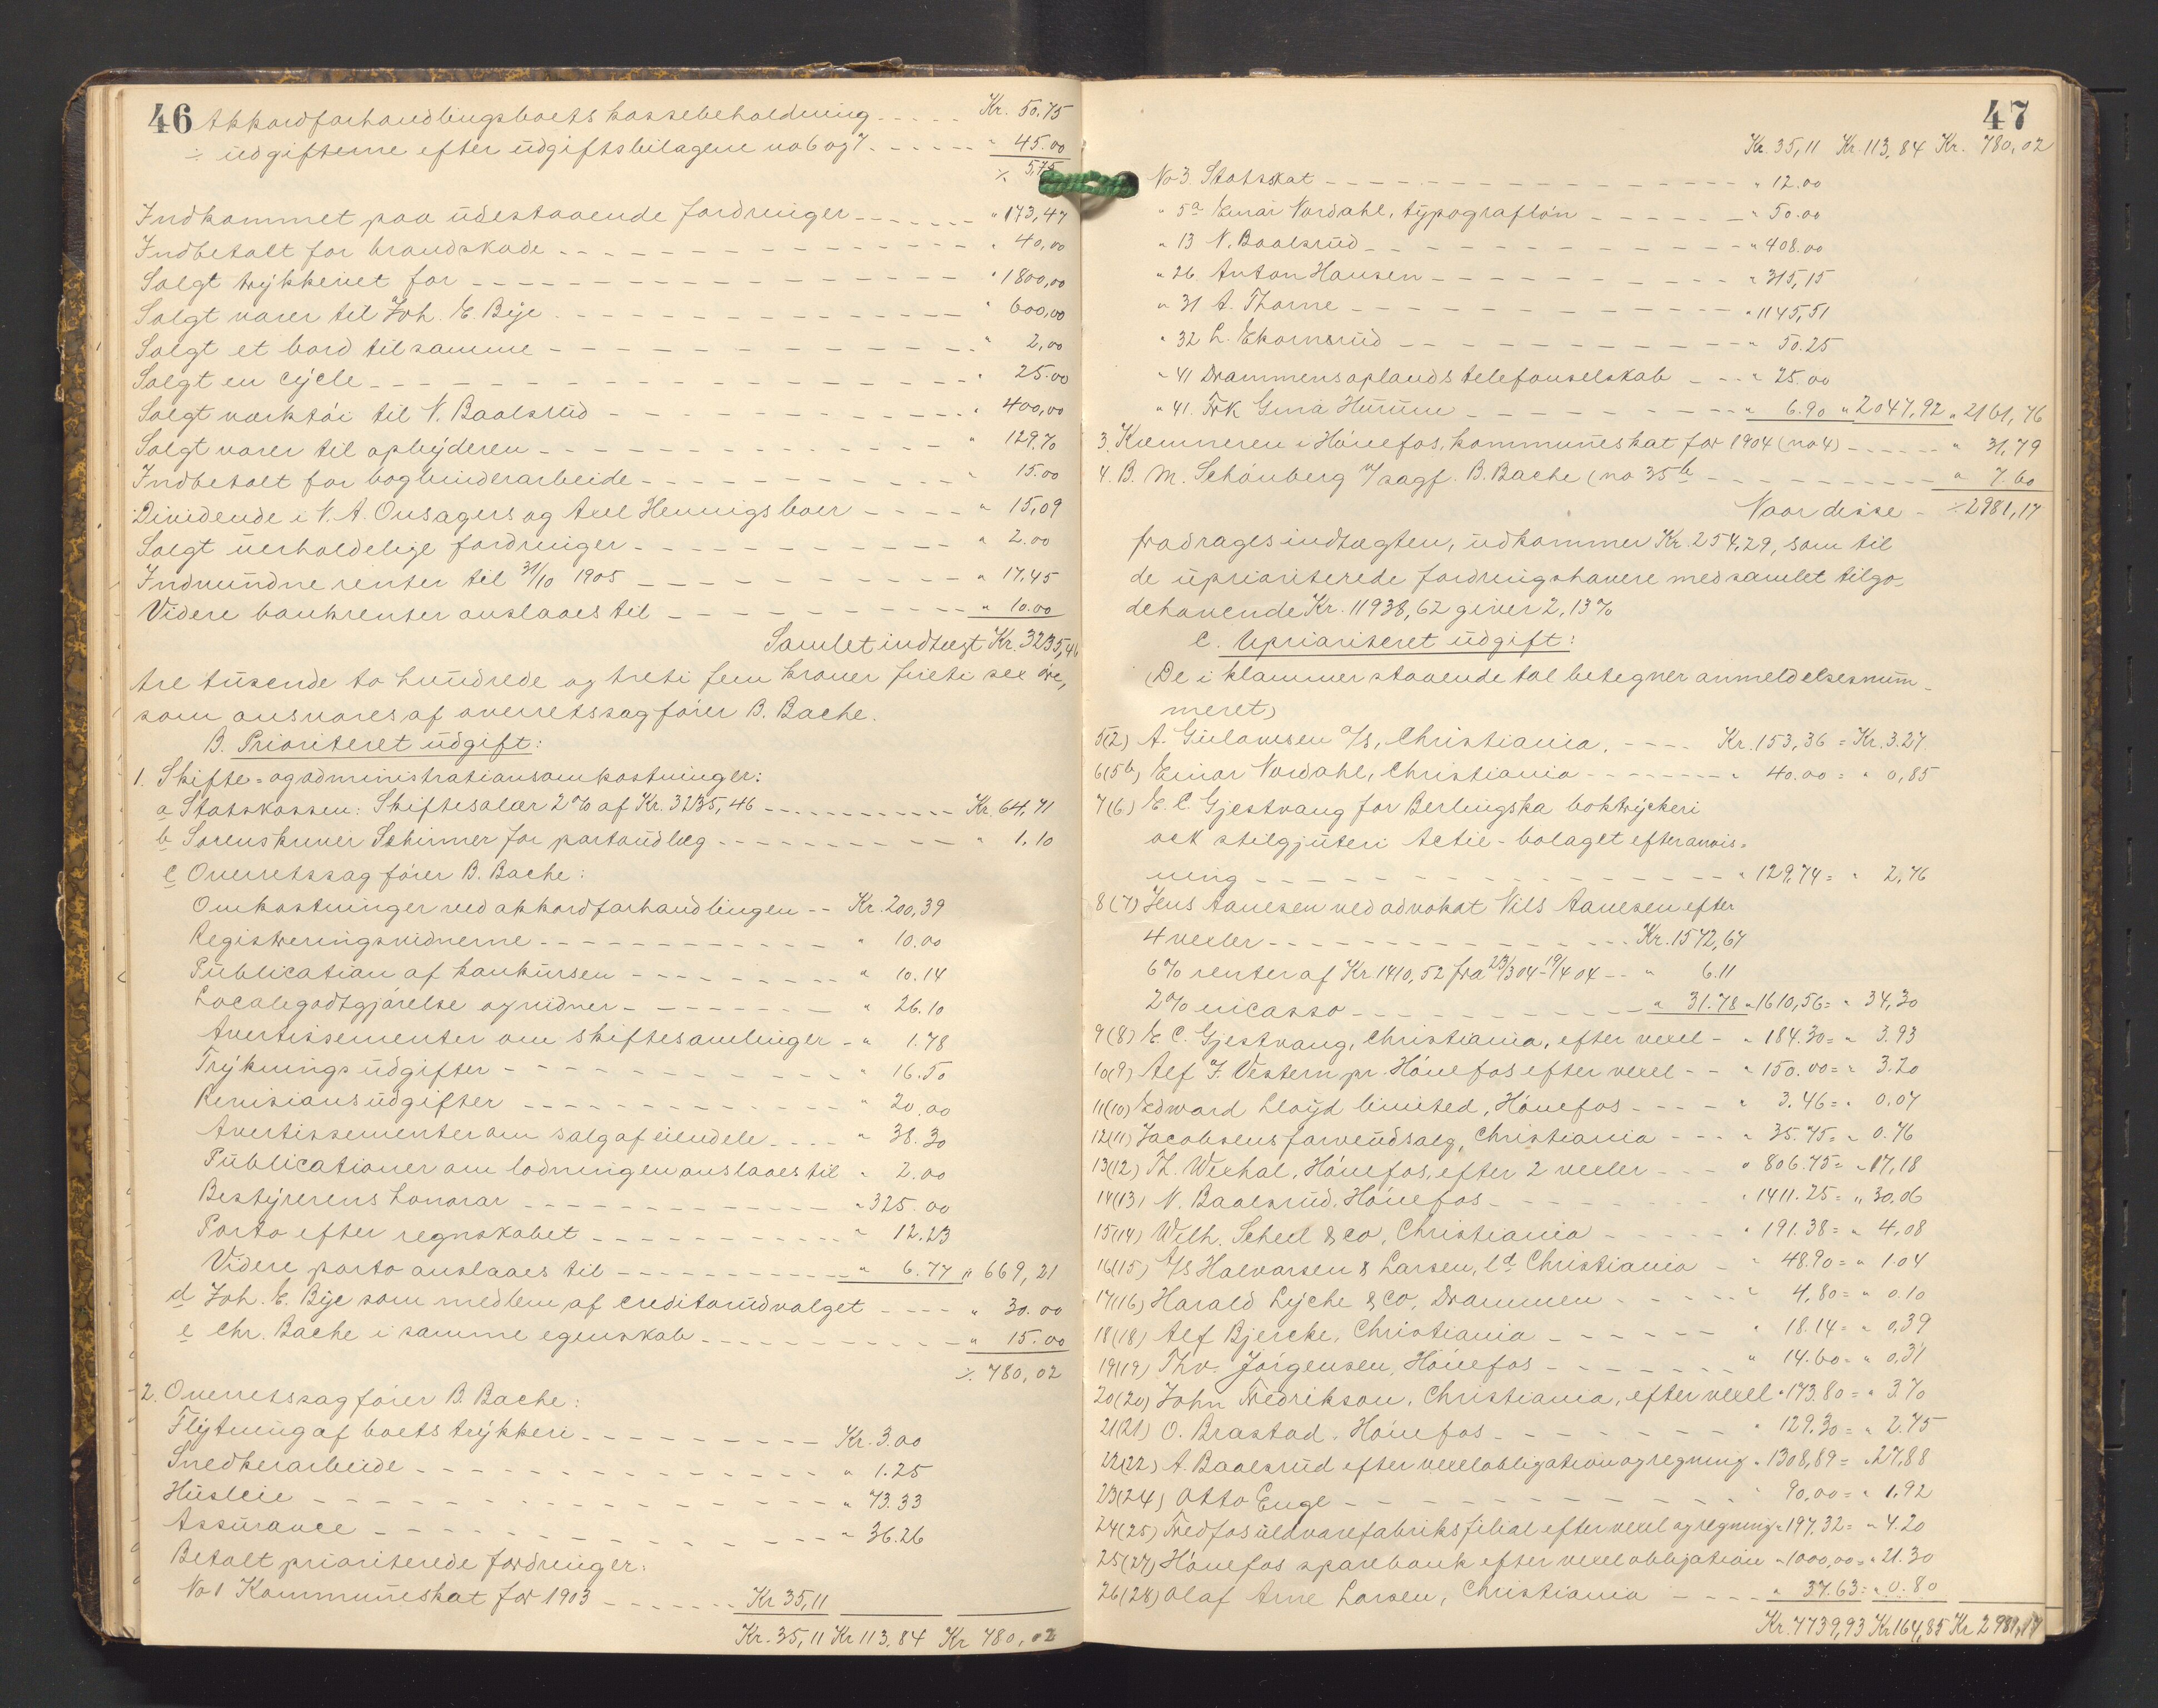 46 Akkordforhandlingsboets kassebeholdning - - - - - Kr. 50.75
÷ udgifterne efter udgiftsbilagene no 6 og 7 - - - - - - " 45.00
÷ 5,75
Indkommet paa udestaaende fordringer - - - - - - " 173,47
Indbetalt for brandskade - - - - - - " 40,00
Solgt trykkeriet for - - - - - - " 1800,00
Solgt varer til Joh. E. Bye - - - - - - " 600,00
Solgt et bord til samme - - - - - - " 2,00
Solgt en cycle - - - - - - " 25.00
Solgt værktöi til N. Baalsrud - - - - - - " 400,00
Solgt varer til opbyderen - - - - - - " 129.70
Indbetalt for bogbinderarbeide - - - - - - " 15.00
Dividende i N. A. Onsagers og Axel Hennigs boer - - - - " 15,09
Solgt uerholdelige fordringer - - - - - - " 2.00
Indvundne renter til 31/10 1905 - - - - - - " 17,45
Videre bankrenter anslaaes til - - - - - - " 10.00
Samlet indtægt Kr. 3235,46
tre tusende to hundrede og treti fem kroner firti sex øre,
som ansvares af overretssagförer B. Bache.
B. Prioriteret udgift:
1. Skifte- og administrationsomkostninger:
a Statskassen: Skiftesalær 2% af Kr. 3235,46 - - - - - - Kr. 64,71
b Sorenskriver Schirmer for portoudlæg - - - - - - " 1.10
c Overretssagförer B. Bache:
Omkostninger ved akkordforhandlingen - - Kr. 200,39
Registreringsvidnerne - - - - - - " 10.00
Publication af konkursen - - - - - - " 10.14
Localegodtgjörelse og vidner - - - - - - " 26.10
Avertissementer om skiftesamlinger - " 1.78
Trykningsudgifter - - - - - - " 16.50
Revisionsudgifter - - - - - - " 20.00
Avertissementer om salg af eiendele - - - - " 38.30
Publicationer om lodningen anslaaes til " 2.00
Bestyrerens honorar - - - - - - " 325.00
Porto efter regnskabet - - - - - - " 12.23
Videre porto anslaaes til - - - - - - " 6.77 " 669,21
d Joh. E. Bye som medlem af creditorudvalget - - - - " 30.00
e Chr. Bache i samme egenskab - - - - - - " 15.00
÷ 780,02
2. Overretssagförer B. Bache:
Flytning af boets trykkeri - - - - - - Kr. 3.00
Snedkerarbeide - - - - - - " 1.25
Husleie - - - - - - " 73.33
Assurance - - - - - - " 36.26
Betalt prioriterede fordringer:
No 1 Kommuneskat for 1903 - - - - - - Kr 35,11
Kr. 35,11 Kr 113,84 Kr 780,02
47
Kr. 35,11 Kr. 113,84 Kr. 780,02
No 3. Statsskat - - - - - - " 12.00
" 5a Einar Nordahl, typograflön - - - - - - " 50.00
" 13 N. Baalsrud - - - - - - " 408.00
" 26. Anton Hansen - - - - - - " 315,15
" 31 A. Thorne - - - - - - " 1145,51
" 32 L. Ekornsrud - - - - - - " 50.25
" 41 Drammens oplands telefonselskab - - - " 25.00
" 41. Frk Gina Hurum - - - - - - " 6.90 " 2047,92 " 2161,76
3. Kæmneren i Hönefos, kommuneskat for 1904 (no 4) - - - - - - " 31,79
4. B. M. Schönberg v/ sagf. B. Bache (no 35b - - - - - - " 7.60
Naar disse - ÷ 2981,17
fradrages indtægten, udkommer Kr. 254,29, som til
de uprioriterede fordringshavere med samlet tilgo-
dehavende Kr. 11938,62 giver 2,13%
C. Uprioriteret udgift:
(De i klammer staaende tal betegner anmeldelsesnum-
meret)
5(2) A. Gulowsen a/s, Christiania, - - - - Kr. 153,36 = Kr. 3.27
6(5b) Einar Nordahl, Christiania - - - - - - " 40.00 = " 0,85
7(6) E. C. Gjestvang for Berlingska boktryckeri
ock stilgjuteri Actie-bolaget efter anvis-
ning - - - - - - " 129,74 = " 2,76
8(7) Jens Aanesen ved advokat Nils Aanesen efter
4 vexler - - - - - - Kr. 1572,67
6% renter af Kr 1410,52 fra 23/3 04 - 19/4 04 - - " 6.11
2% incasso - - - - - - " 31.78 " 1610,56 = " 34,30
9(8) E. C. Gjestvang, Christiania, efter vexel - " 184.30 = " 3.93
10(9) Alf J. Vestern pr. Hönefos efter vexel - - " 150.00 = " 3.20
11(10) Edward Lloyd limited, Hönefos - - - - " 3.46 = " 0.07
12(11) Jacobsens farveudsalg, Christiania - - - " 35.75 = " 0.76
13(12) Th. Wexhal, Hönefos, efter 2 vexler - - - " 806.75 = " 17,18
14(13) N. Baalsrud, Hönefos - - - - - - " 1411.25 = " 30,06
15(14) Wilh. Scheel & co, Christiania - - - - - - " 191.38 = " 4,08
16(15) A/s Halvorsen & Larsen, ld Christiania - " 48.90 = " 1.04
17(16) Harald Lyche & co, Drammen - - - - - - " 4,80 = " 0.10
18(18) Alf Bjercke, Christiania - - - - - - " 18.14 = " 0,39
19(19) Thv. Jörgensen, Hönefos - - - - - - " 14.60 = " 0,31
20(20) John Fredrikson, Christiania, efter vexel " 173.80 = " 3.70
21(21) O. Brastad. Hönefos - - - - - - " 129.30 = " 2.75
22(22) A. Baalsrud efter vexelobligation og regning " 1308,89 = " 27,88
23(24) Otto Enge - - - - - - " 90,00 = " 1.92
24(25) Fredfos uldvarefabriks filial efter vexel og regning " 197.32 = " 4.20
25(27) Hönefos sparebank efter vexelobligation " 1000,00 = " 21.30
26(28) Olaf Arne Larsen, Christiania - - - - " 37.63 = " 0.80
Kr. 7739,93 Kr 164,85 Kr 2981,17